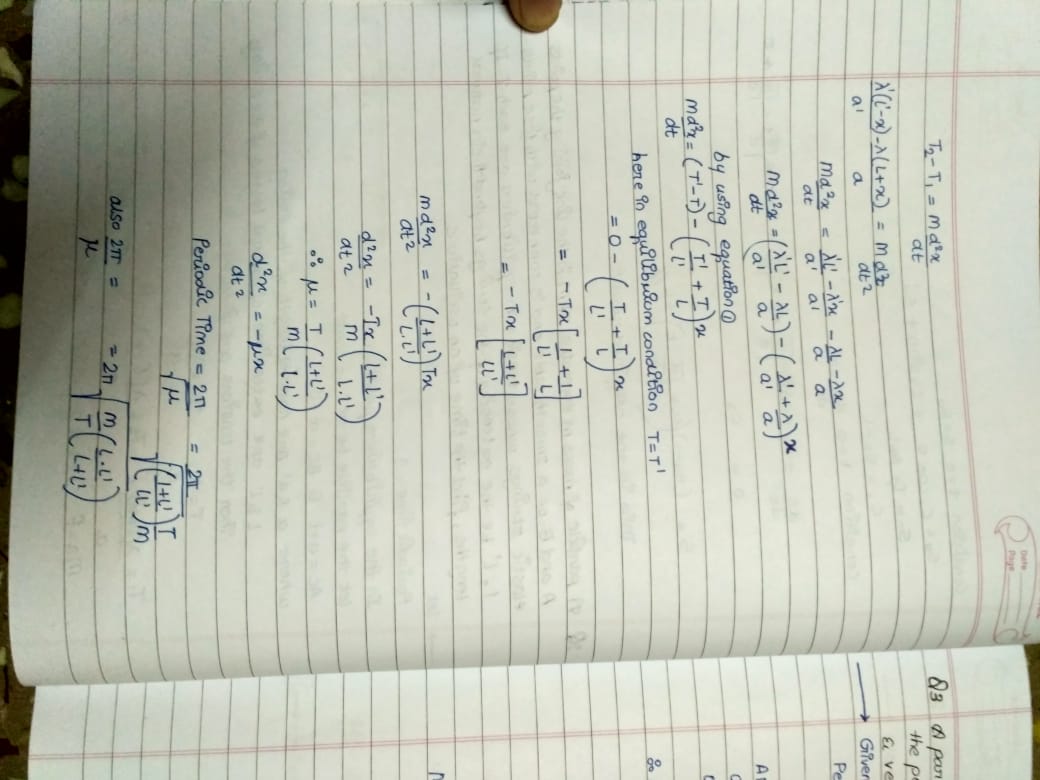 Date
Page
T₂ - T₁ = m d²x/dt
λ'(l'-x)/a' - λ(L+x)/a = m d²x/dt²
m d²x/dt = λ'L'/a' - λ'x/a' - λL/a - λx/a
m d²x/dt = (λ'L'/a' - λL/a) - (λ'/a' + λ/a)x
by using equation ①
m d²x/dt = (T'-T) - (T'/L' + T/L)x
here in equilibrium condition T=T'
= 0 - (T/L' + T/L)x
= - Tx[1/L' + 1/L]
= - Tx[L+L'/LL']
m d²x/dt² = -(L+L'/L.L')Tx
d²x/dt² = -Tx/m (L+L'/L.L')
∴ μ = T/m (L+L'/L.L')
d²x/dt² = -μx
Periodic Time = 2π/√μ = 2π/√(L+L'/LL')T/m
also 2π/μ = = 2π√m/T(L.L'/L+L')
Q3 A par
the p
& ve
→ Given
Pe
∴